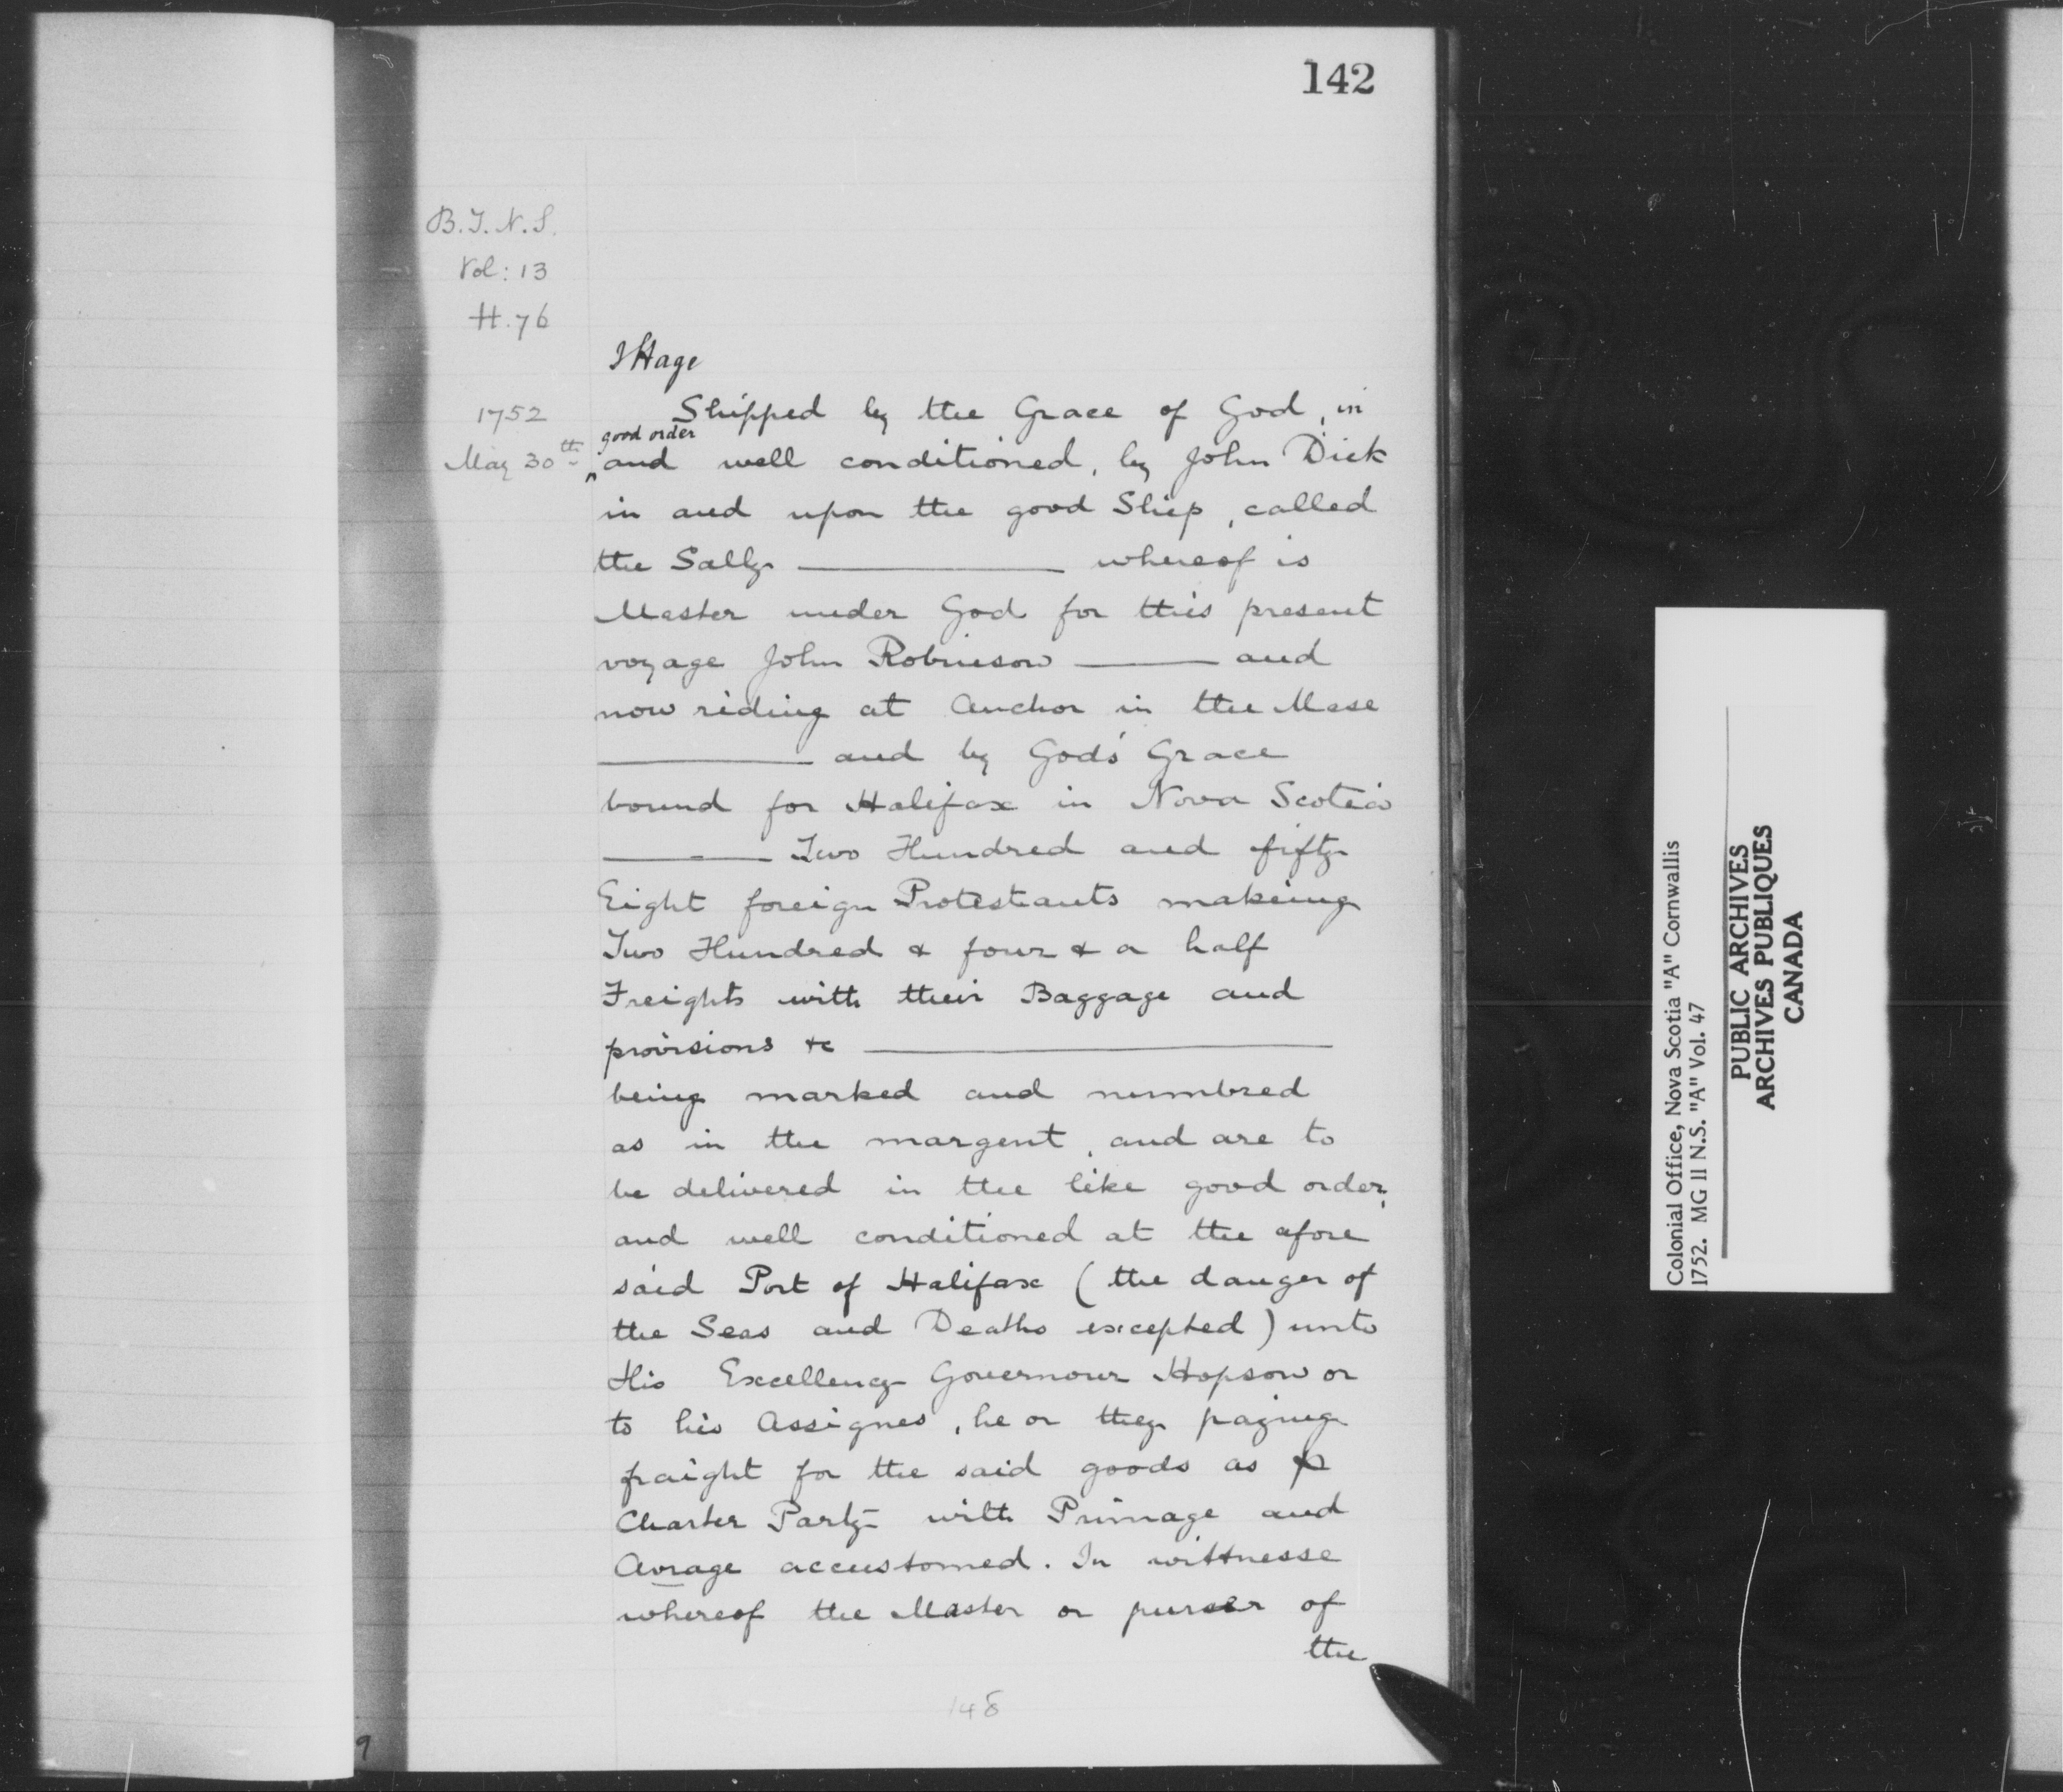 142
B.T.N.S.
Vol: 13
H. 76
1752
May 30th
Shipped by the Grace of God, in
good order
and well conditioned, by John Dick
in and upon the good Ship, called
the Sally ——— whereof is
Master under God for this present
voyage John Robinson ——— and
now riding at Anchor in the Mase
——— and by Gods' Grace
bound for Halifax in Nova Scotia
——— Two Hundred and fifty
Eight foreign Protestants makeing
Two Hundred & four & a half
Freights with their Baggage and
provisions &c ———
being marked and numbred
as in the margent, and are to
be delivered in the like good order,
and well conditioned at the afore
said Port of Halifax (the danger of
the Seas and Deaths excepted) unto
His Excellency Governour Hopson or
to his Assignes, he or they paying
fraight for the said goods as p
Charter Party — with Primage and
Avrage accustomed. In wittnesse
whereof the Master or purser of
the
148
9
Colonial Office, Nova Scotia "A" Cornwallis
1752. MG II N.S. "A" Vol. 47
PUBLIC ARCHIVES
ARCHIVES PUBLIQUES
CANADA